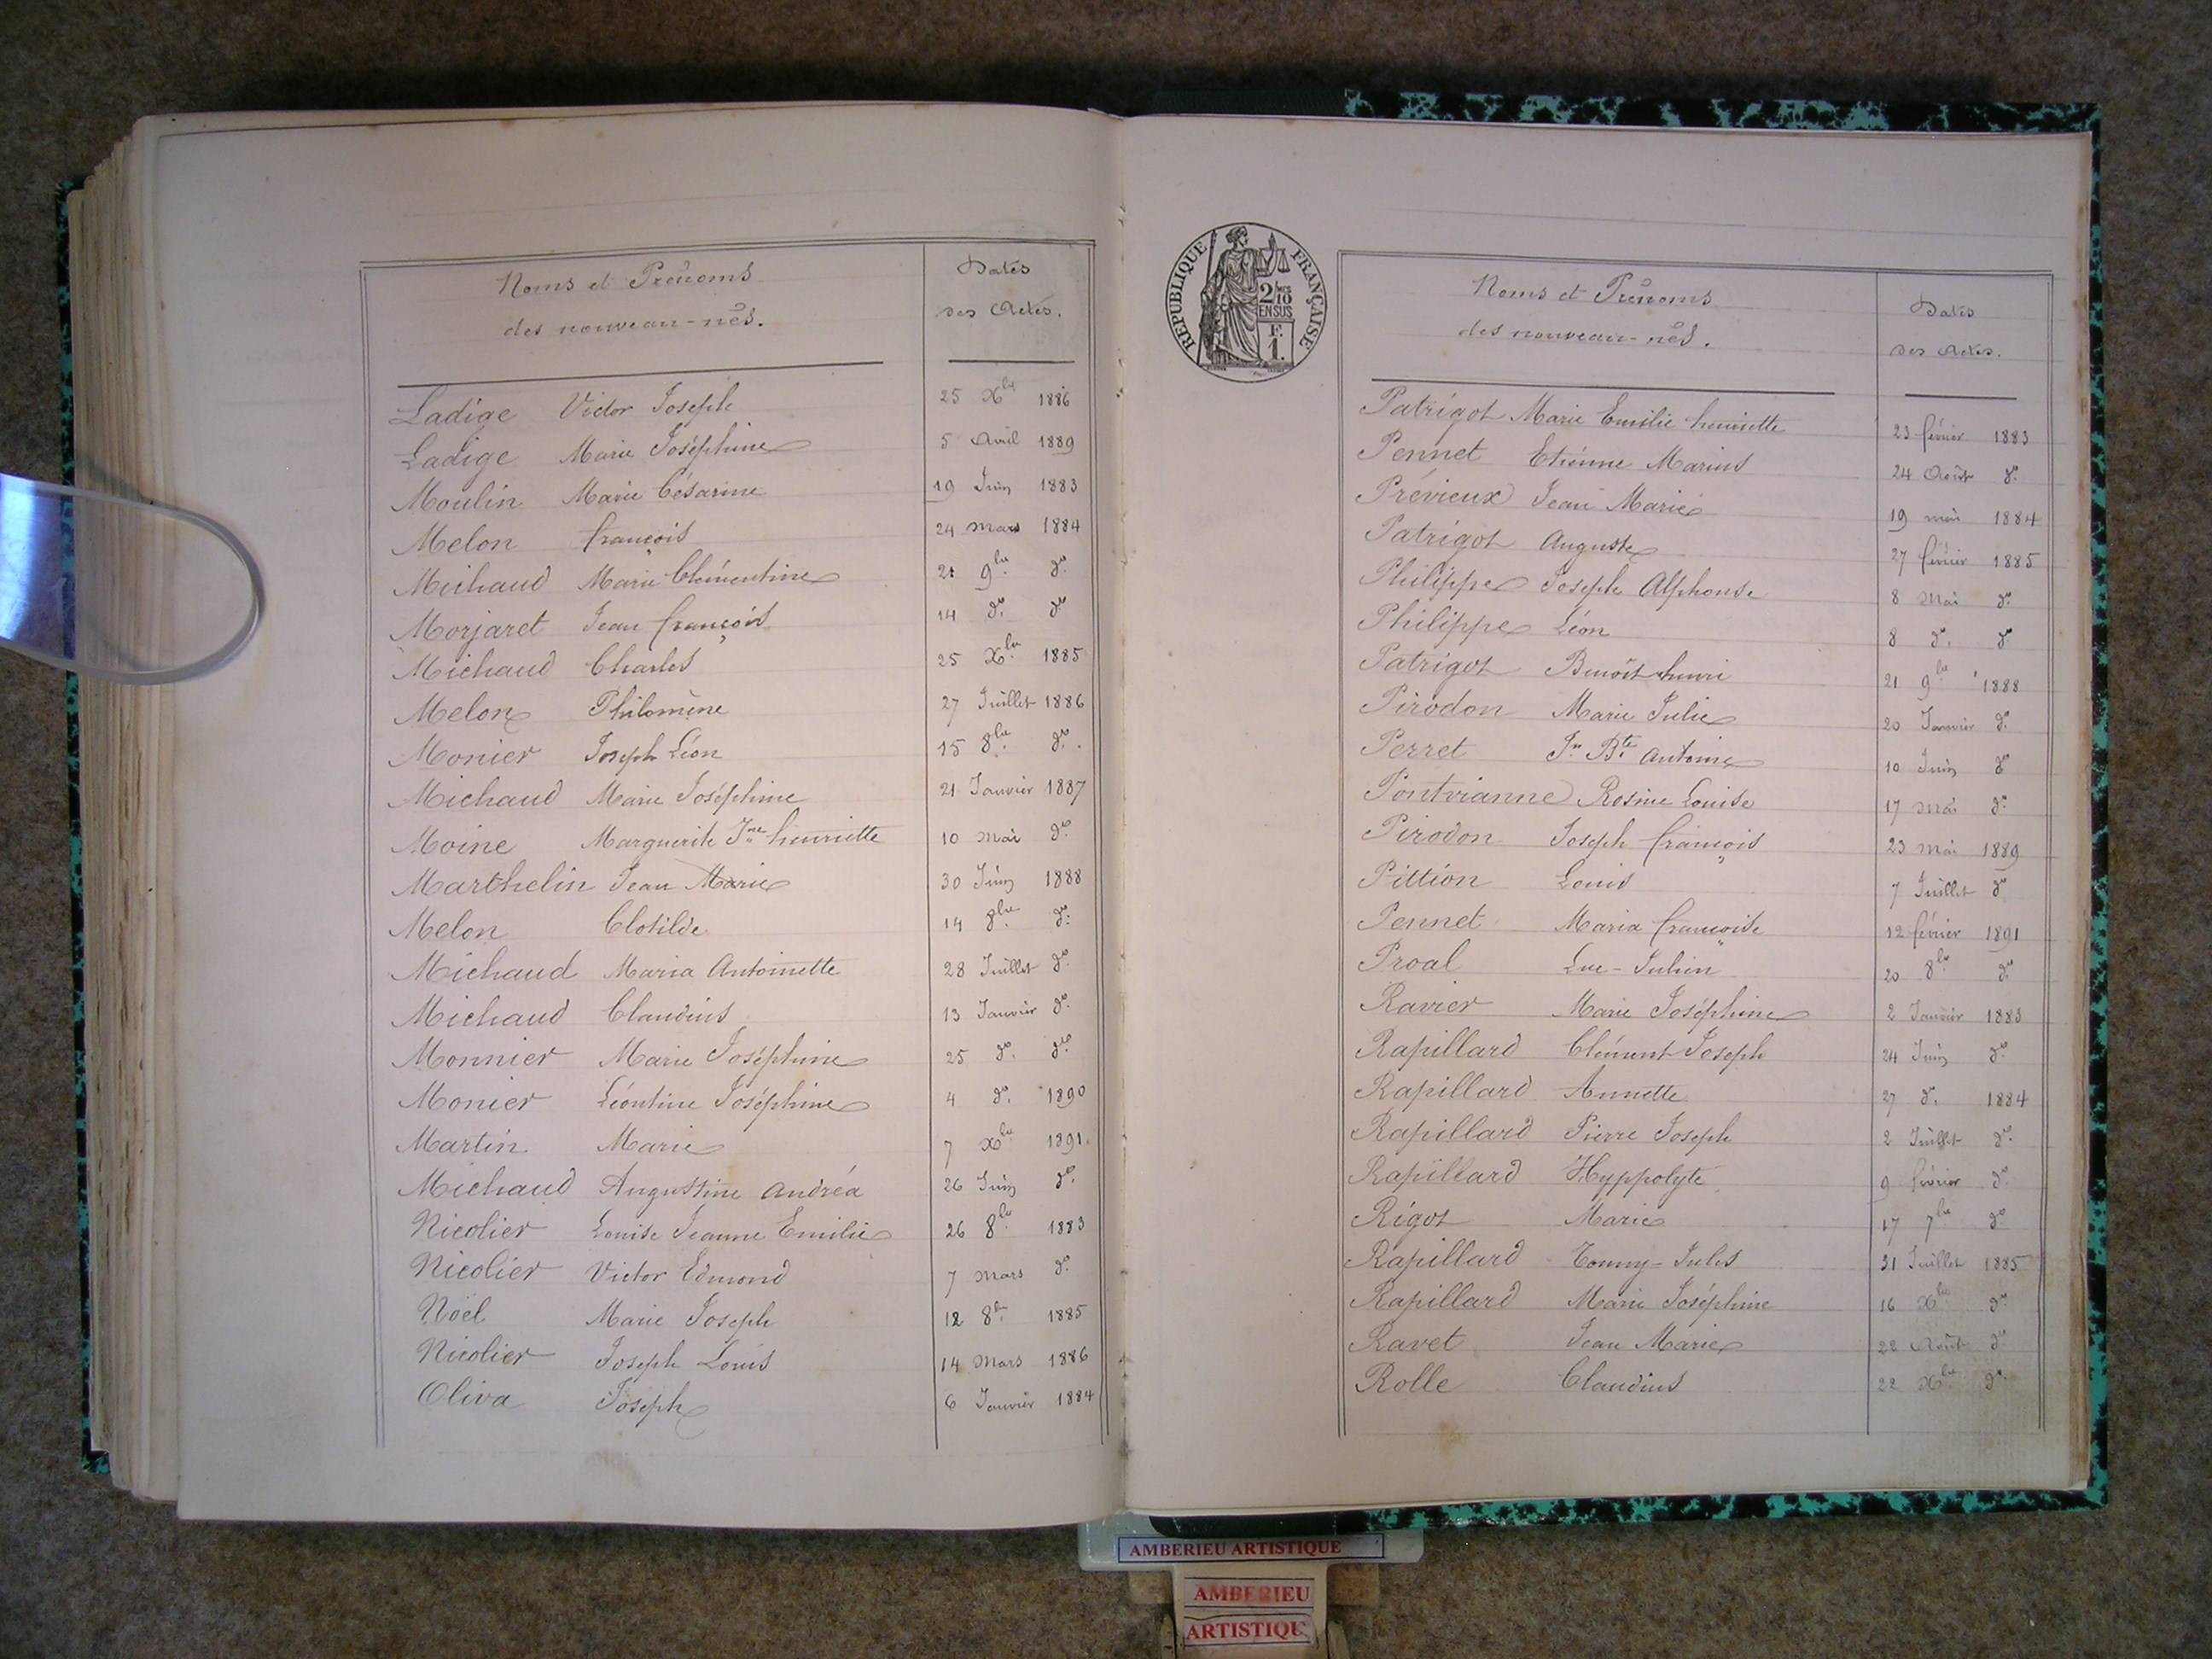 Noms et Prénoms
des nouveau-nés.
Dates
des Actes.
Ladige Victor Joseph 25 Xbre 1886
Ladige Marie Joséphine 5 Avril 1889
Moulin Marie Césarine 19 Juin 1883
Melon françois 24 mars 1884
Michaud Marie Clémentine 21 9bre do
Morjaret Jean françois 14 do do
Michaud Charles 25 Xbre 1885
Melon Philomène 27 Juillet 1886
Monier Joseph Léon 15 8bre do
Michaud Marie Joséphine 21 Janvier 1887
Moine Marguerite Jne henriette 10 Mai do
Marthelin Jean Marie 30 Juin 1888
Melon Clotilde 14 8bre do
Michaud Maria Antoinette 28 Juillet do
Michaud Claudius 13 Janvier do
Monnier Marie Joséphine 25 do do
Monier Léontine Joséphine 4 do 1890
Martin Marie 7 Xbre 1891.
Michaud Augustine Andréa 26 Juin do
Nicolier Louise Jeanne Emilie 26 8bre 1883
Nicolier Victor Edmond 7 Mars do
Noël Marie Joseph 12 8bre 1885
Nicolier Joseph Louis 14 Mars 1886
Oliva Joseph 6 Janvier 1884
REPUBLIQUE FRANÇAISE
2/10
EN SUS
F.
1.
Noms et Prénoms
des nouveau-nés.
Dates
des Actes.
Patrigot Marie Emilie henriette 23 février 1883
Pennet Etiénne Marius 24 Août do
Prévieux Jean Marie 19 mai 1884
Patrigot Auguste 27 février 1885
Philippe Joseph Alphonse 8 Mai do
Philippe Léon 8 do do
Patrigot Benoît henri 21 9bre 1888
Pirodon Marie Julie 20 Janvier do
Perret Jn Bte Antoine 10 Juin do
Pontvianne Rosine Louise 17 Mai do
Pirodon Joseph françois 23 Mai 1889
Pittion Louis 7 Juillet do
Pennet Maria françoise 12 février 1891
Proal Luc-Julien 20 8bre do
Ravier Marie Joséphine 2 Janvier 1883
Rapillard Clément Joseph 24 Juin do
Rapillard Annette 27 do 1884
Rapillard Pierre Joseph 2 Juillet do
Rapillard Hyppolyte 9 février do
Rigot Marie 17 7bre do
Rapillard Tonny-Jules 31 Juillet 1885
Rapillard Marie Joséphine 16 Xbre do
Ravet Jean Marie 22 Août do
Rolle Claudius 22 Xbre do
AMBERIEU ARTISTIQUE
AMBERIEU
ARTISTIQU